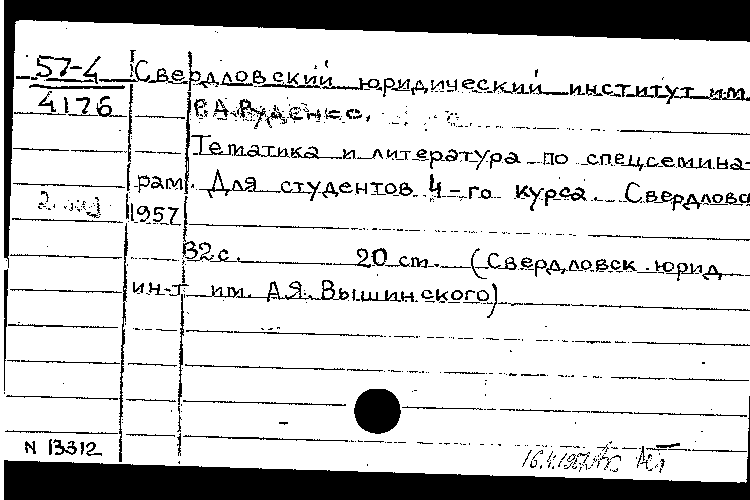 57-4 Свердловский юридический институт им.
4176
Тематика и литература по спецсемина-
рам. Для студентов 4-го курса. Свердловс
1957
32 с. 20 cm. (Свердловск. юрид
ин-т им. А.Я. Вышинского)
N 13312